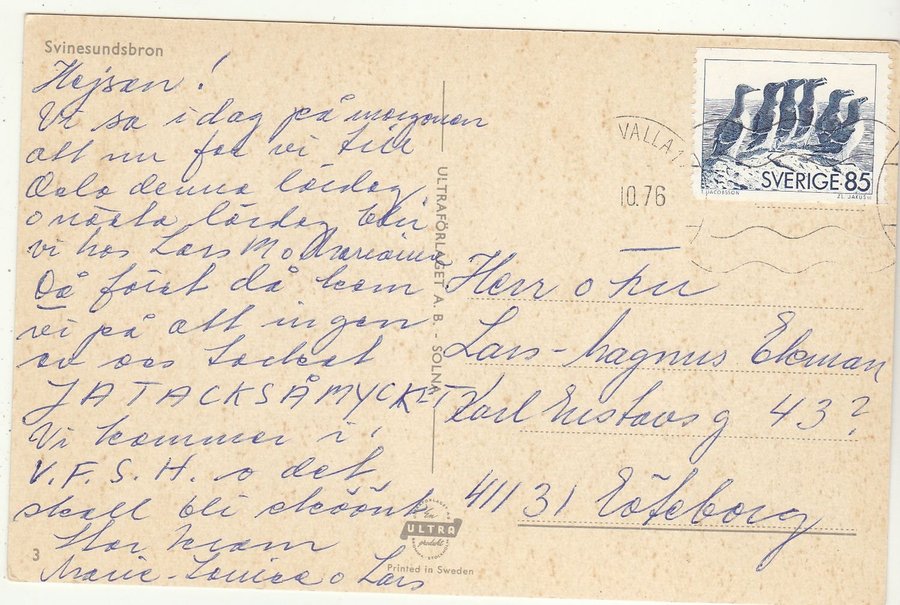 Svinesundsbron
Hejsan!
Vi sa i dag på morgonen
att nu far vi till
Oslo denna lördag
o nästa lördag blir
vi hos Lars M o Marianne
Då först då kom
vi på att ingen
av oss tackat
JA TACK SÅ MYCKET!
Vi kommer i
V.F.S.H. o det
skall bli sköönt
Stor kram
Marie-Louise o Lars
3
ULTRAFÖRLAGET A.B. - SOLNA
En
ULTRA
produkt
Printed in Sweden
VALLA 1
10.76
SVERIGE 85
T. JACOBSSON
ZL. JAKUS SC
Herr o Fru
Lars-Magnus Ekman
Karl Gustavsg 43?
411 31 Göteborg